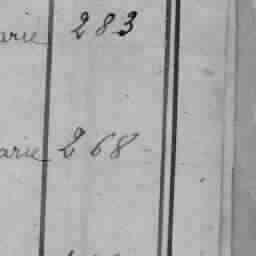 arie 283
arie 268